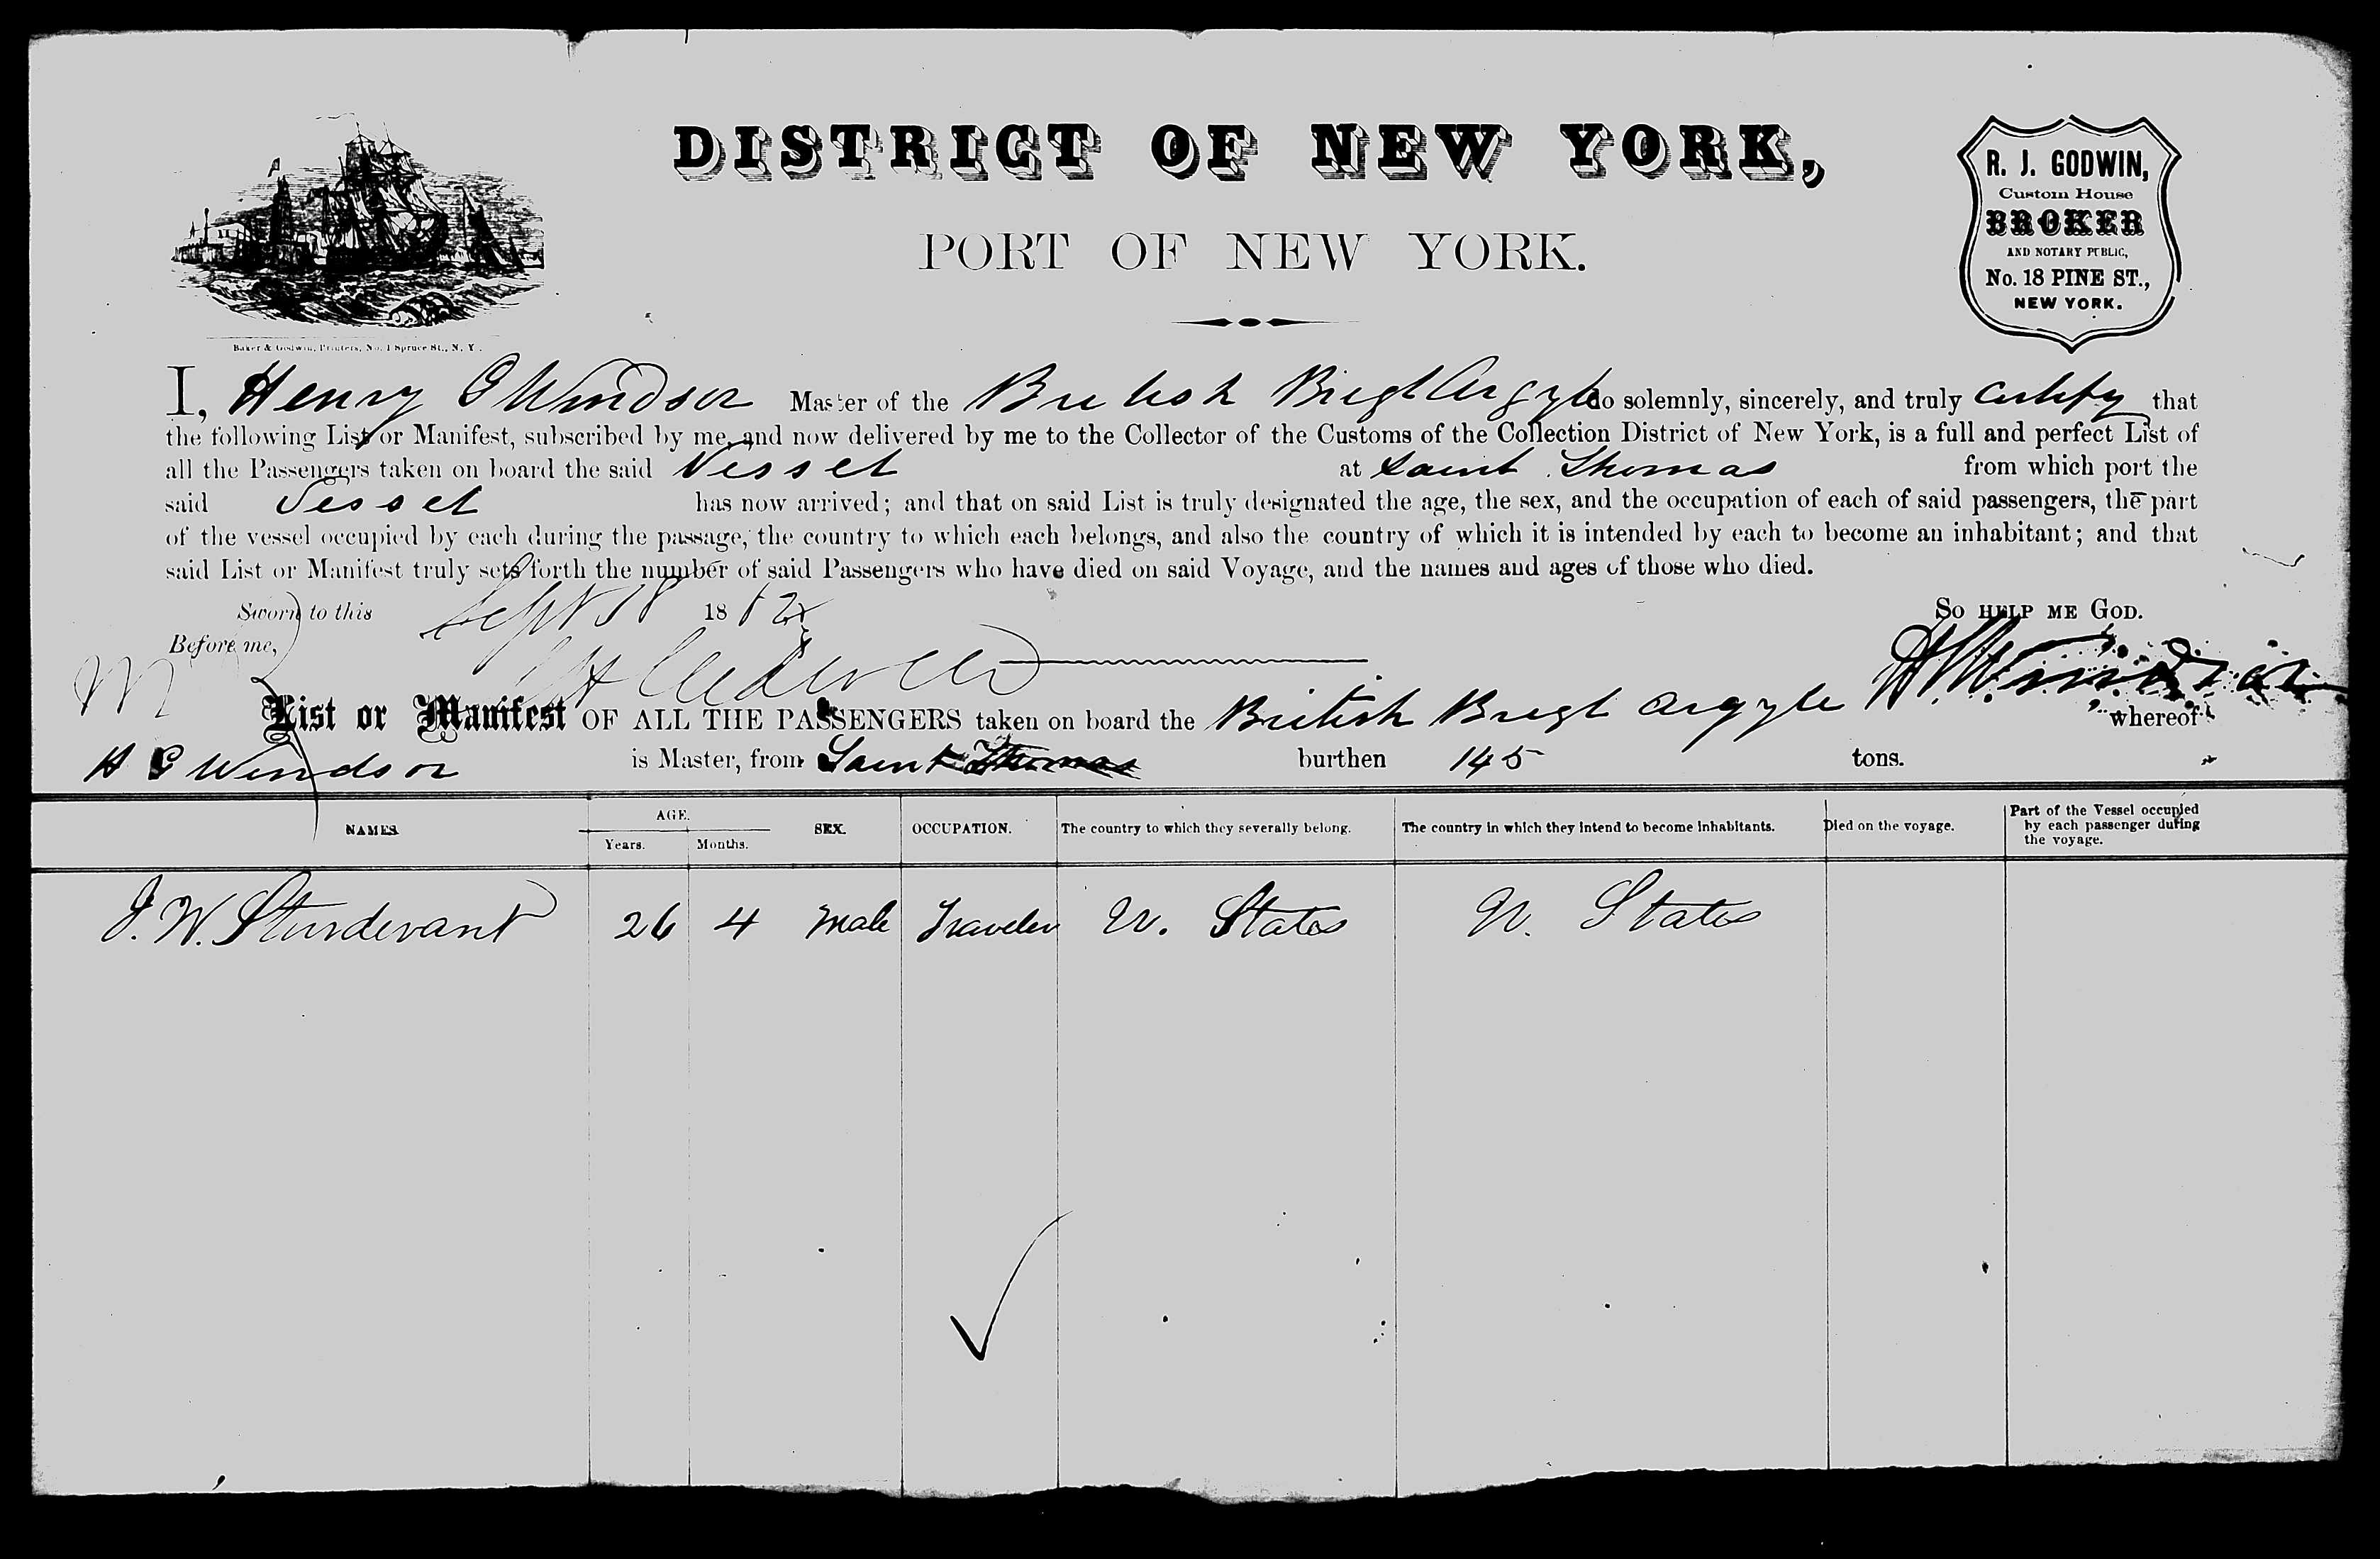 DISTRICT OF NEW YORK,
PORT OF NEW YORK.
R. J. GODWIN,
Custom House
BROKER
AND NOTARY PUBLIC,
No. 18 PINE ST.,
NEW YORK.
Baker & Godwin, Printers, No. 1 Spruce St., N. Y.
I, Henry G Windsor Master of the British Brigt Argyle do solemnly, sincerely, and truly certify that
the following List or Manifest, subscribed by me, and now delivered by me to the Collector of the Customs of the Collection District of New York, is a full and perfect List of
all the Passengers taken on board the said Vessel at Saint Thomas from which port the
said Vessel has now arrived; and that on said List is truly designated the age, the sex, and the occupation of each of said passengers, the part
of the vessel occupied by each during the passage, the country to which each belongs, and also the country of which it is intended by each to become an inhabitant; and that
said List or Manifest truly sets forth the number of said Passengers who have died on said Voyage, and the names and ages of those who died.
Sworn to this Sept 18 1862 So HELP ME GOD.
Before me,
H G Windsor
List or Manifest OF ALL THE PASSENGERS taken on board the British Brigt Argyle whereof
H G Windsor is Master, from Saint Thomas burthen 145 tons.
NAMES. AGE. Years. Months. SEX. OCCUPATION. The country to which they severally belong. The country in which they intend to become inhabitants. Died on the voyage. Part of the Vessel occupied by each passenger during the voyage.
J. W. Sturdevant 26 4 Male Traveler U. States U. States